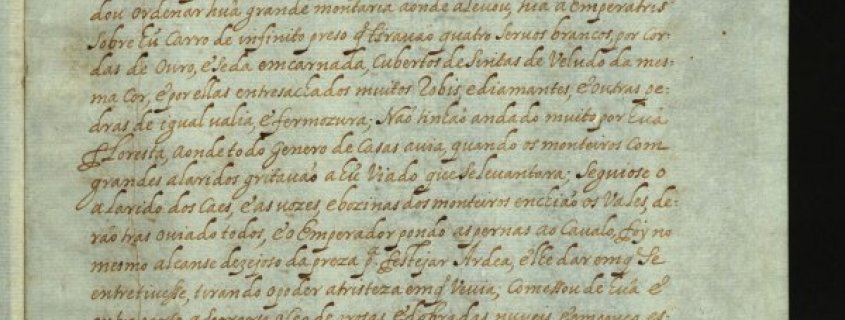 dou ordenar hũa grande montaria aonde a levou, hia a Emperatris
sobre hũ Carro de infinito preso q̃ tiravaõ quatro servos brancos, por Cor-
das de Ouro, e seda emcarnada, Cubertos de Sintas de Veludo da mes-
ma Cor, e por ellas entresachados muitos Robis, e diamantes, e outras pe-
dras de igual valia, e fermozura; Naõ tinhaõ andado muito por hũa
Floresta, aonde todo genero de Casas avia, quando os monteiros Com
grandes alaridos gritavaõ a hũ Viado que se levantara; Seguiose o
alarido dos Caes, e as vozes, e bozinas dos monteiros enchiaõ os Vales, de-
raõ tras o viado todos, e o Emperador pondo as pernas ao Cavalo, foy no
mesmo alcanse dezejoso da preza p.ª festejar Ardea, e lhe dar em q̃ Se
entretivesse, tirando o poder a tristeza em q̃ Vevia; Comessou de hũa e